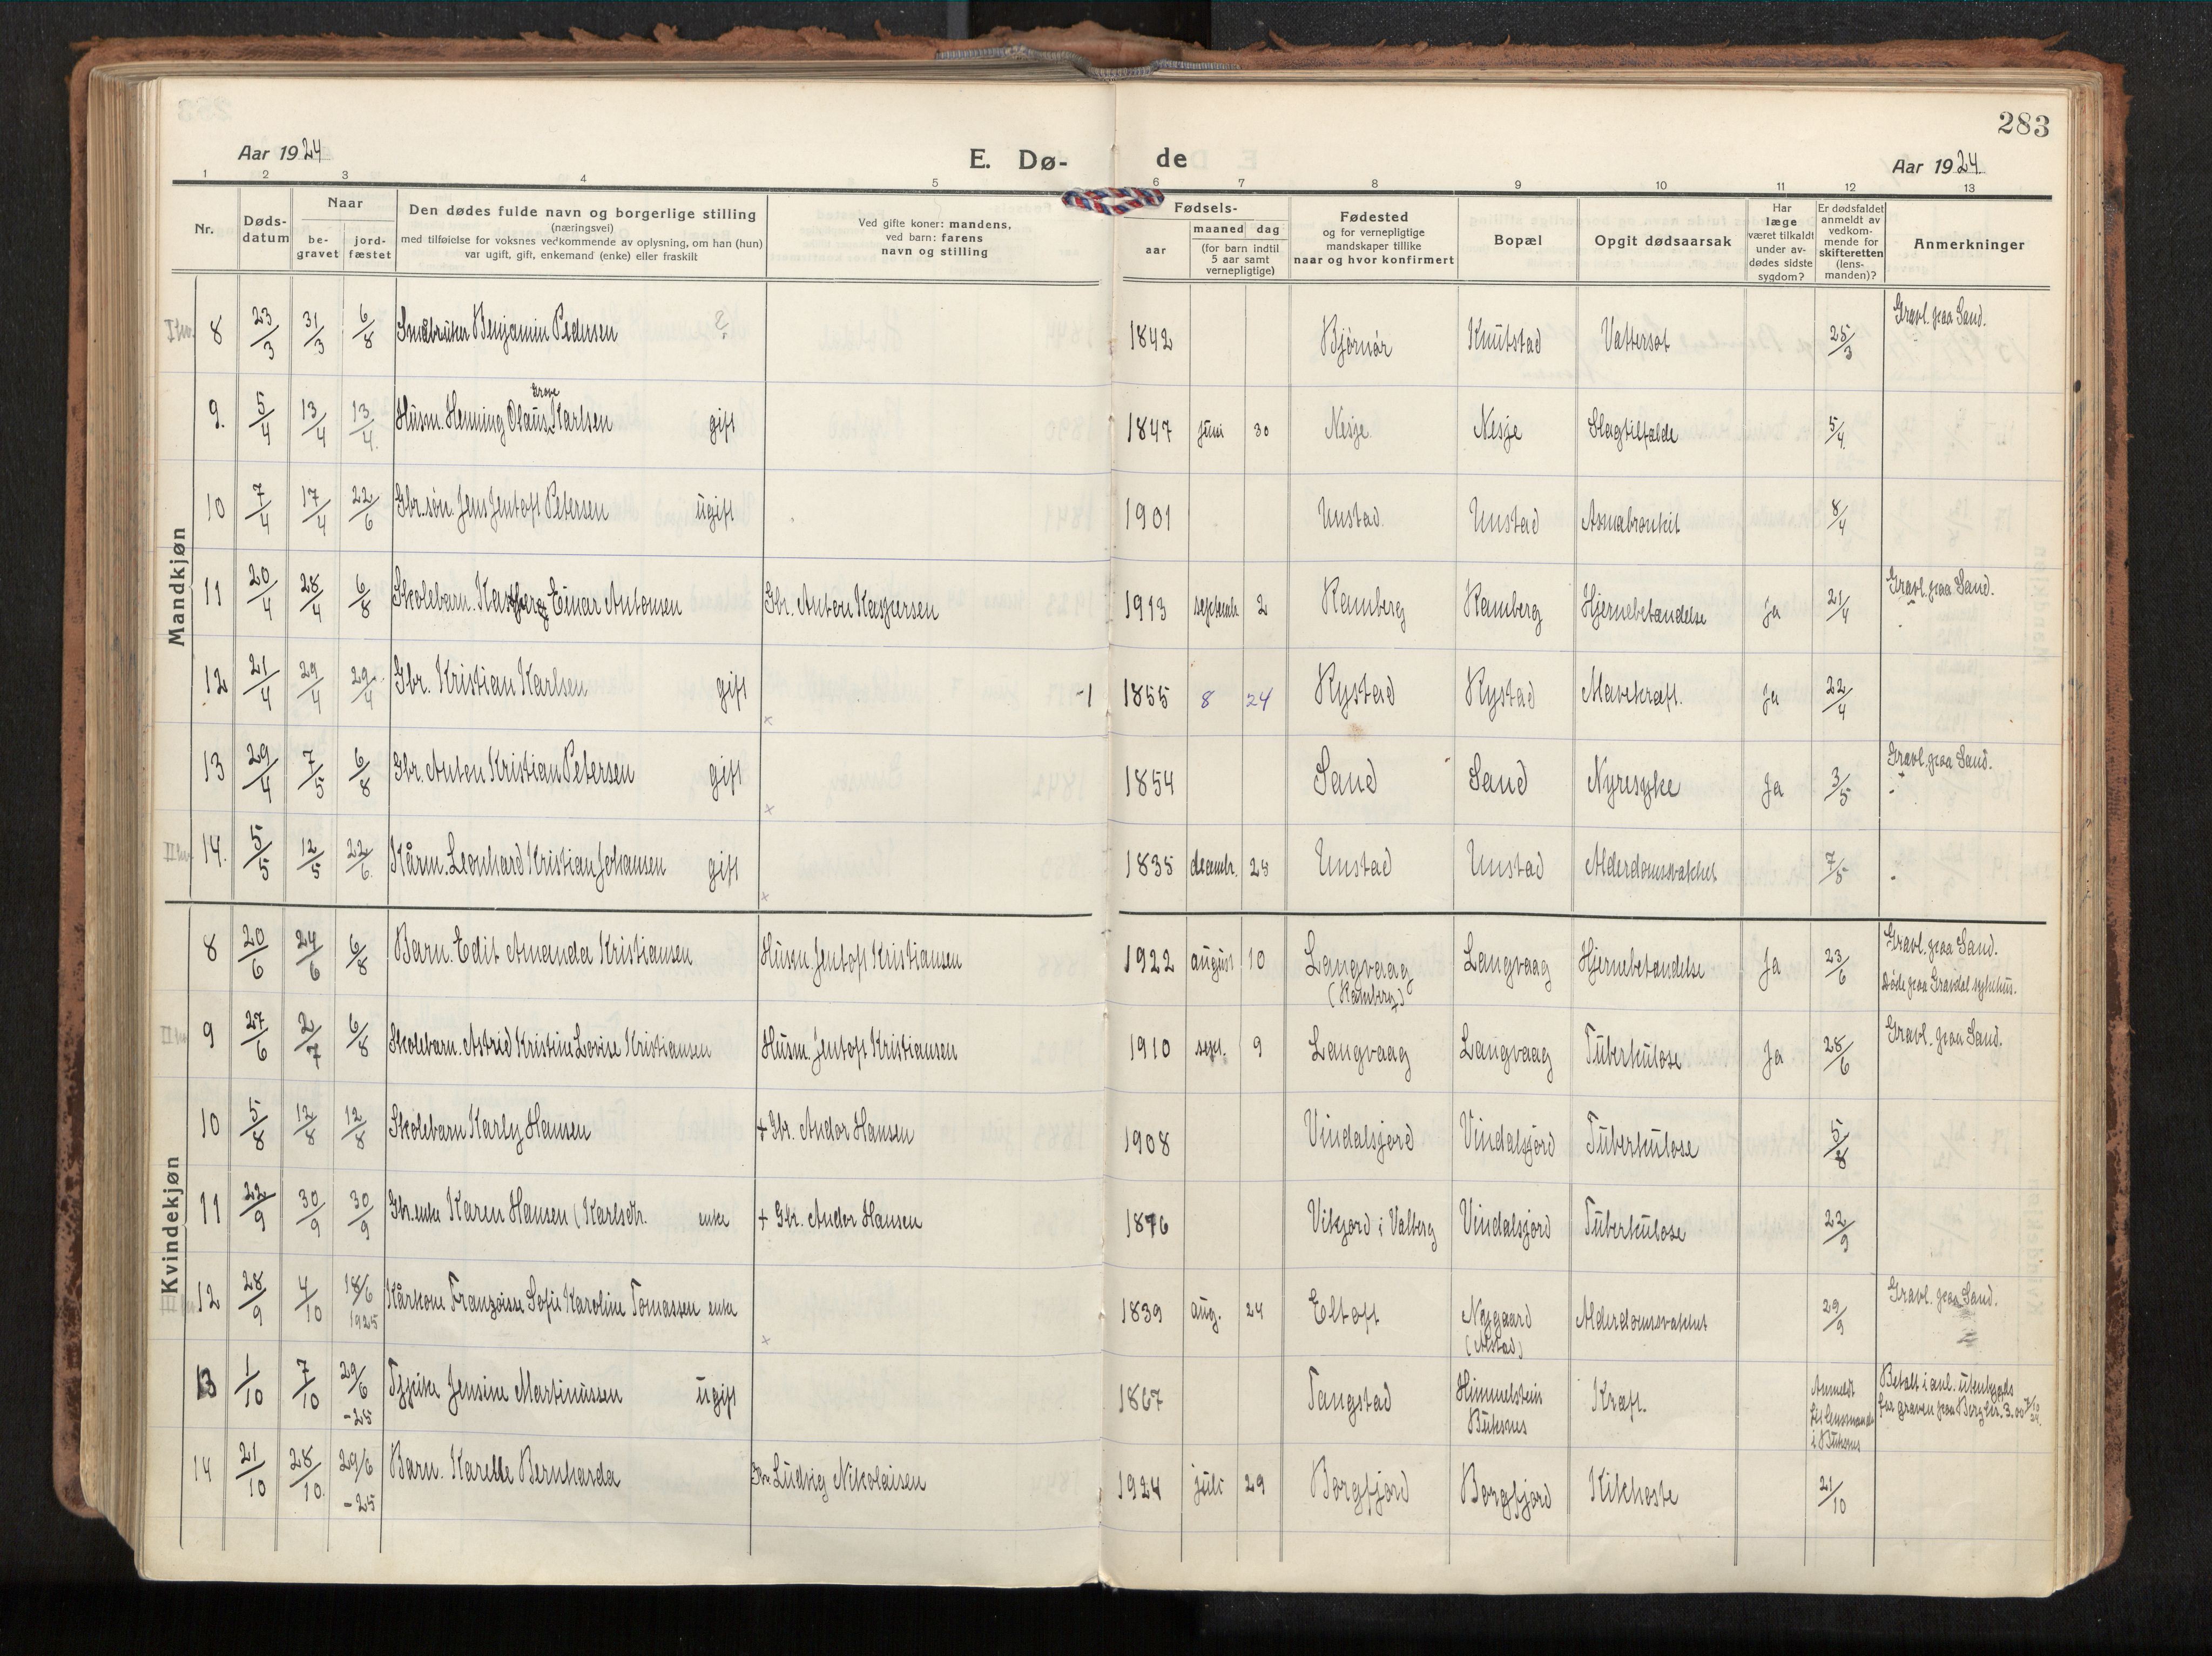 283
Aar 1924
E. Dø-
de
Aar 1924
1 2 3 4 5 6 7 8 9 10 11 12 13
Nr.
Døds-
datum
Naar
be-
gravet
jord-
fæstet
Den dødes fulde navn og borgerlige stilling
(næringsvei)
med tilføielse for voksnes vedkommende av oplysning, om han (hun)
var ugift, gift, enkemand (enke) eller fraskilt
Ved gifte koner: mandens,
ved barn: farens
navn og stilling
Fødsels-
aar
maaned dag
(for barn indtil
5 aar samt
vernepligtige)
Fødested
og for vernepligtige
mandskaper tillike
naar og hvor konfirmert
Bopæl
Opgit dødsaarsak
Har
læge
været tilkaldt
under av-
dødes sidste
sygdom?
Er dødsfaldet
anmeldt av
vedkom-
mende for
skifteretten
(lens-
manden)?
Anmerkninger
Mandkjøn
I kv. 8 23/3 31/3 6/8 Småbruker Benjamin Pedersen ? 1842 Bjørnør Knutstad Vattersot 25/3 Gravl. paa Sand.
9. 5/4 13/4 13/4. Husm. Henning Olaus Grove Karlsen gift 1847 juni 30 Nesje Nesje Slagtilfælde 5/4.
10 7/4 17/4 22/6 Gbr.søn. Jens Jentoft Petersen ugift 1901 Unstad. Unstad Asmabronkit 8/4
11 20/4 28/4 6/8 Skolebarn. Kasberg Einar Antonsen Gbr. Anton Kaspersen 1913 septemb. 2 Ramberg Ramberg Hjernebetændelse ja 21/4 Gravl. paa Sand.
12 21/4 29/4 29/4 Gbr. Kristian Karlsen gift 1855 8 24 Rystad Rystad Mavekræft. Ja 22/4
13 29/4 7/5 6/8 Gbr. Anton Kristian Petersen gift 1854 Sand Sand Nyresyke Ja 3/5 Gravl. paa Sand.
II kv. 14. 5/5 12/5 22/6 Kårm. Leonhard Kristian Johansen gift 1835 decembr. 25 Unstad Unstad Alderdomssvakhet 7/5
Kvindekjøn
8 20/6 24/6 6/8 Barn. Edit Amanda Kristiansen Husm. Jentoft Kristiansen 1922 august 10 Langvaag (Ramberg) Langvaag Hjernebetændelse Ja 23/6 Gravl. paa Sand.
Døde paa Gravdal sykehus.
II kv 9 27/6 2/7 6/8 Skolebarn. Astrid Kristine Lovise Kristiansen Husm. Jentoft Kristiansen 1910 sept. 9 Langvaag Langvaag Tuberkulose Ja 28/6 Gravl. paa Sand.
10 5/8 12/8 12/8 Skolebarn Karly Hansen + Gbr. Andor Hansen 1908 Vindalsjord Vindalsjord Tuberkulose 5/8
11 22/9 30/9 30/9 Gbr.enke Karen Hansen (Karlsdtr. enke + Gbr. Andor Hansen 1876 Vikjord i Valberg Vindalsjord Tuberkulose 22/9
III 12 28/9 4/10 18/6 1925 Kårkone Franzoisse Sofie Karoline Tomassen enke 1839 aug. 24 Eltoft Nygaard (Alstad) Alderdomssvakhet 29/9 Gravl. paa Sand.
13 1/10 7/10 29/6 -25 Tjyeike Jensine Martinussen ugift 1867 Tangstad Himmelstein Buksnes Kræft. Anmeldt til lensmanden i Buksnes Betalt i anl. utenbygds
for graven paa Borg kr. 3.00 7/10 24.
14 21/10 28/10 29/6 -25 Barn. Karelle Bernharda Gbr. Ludvig Nikolaisen 1924 juli 29 Borgfjord Borgfjord Kikhoste 21/10